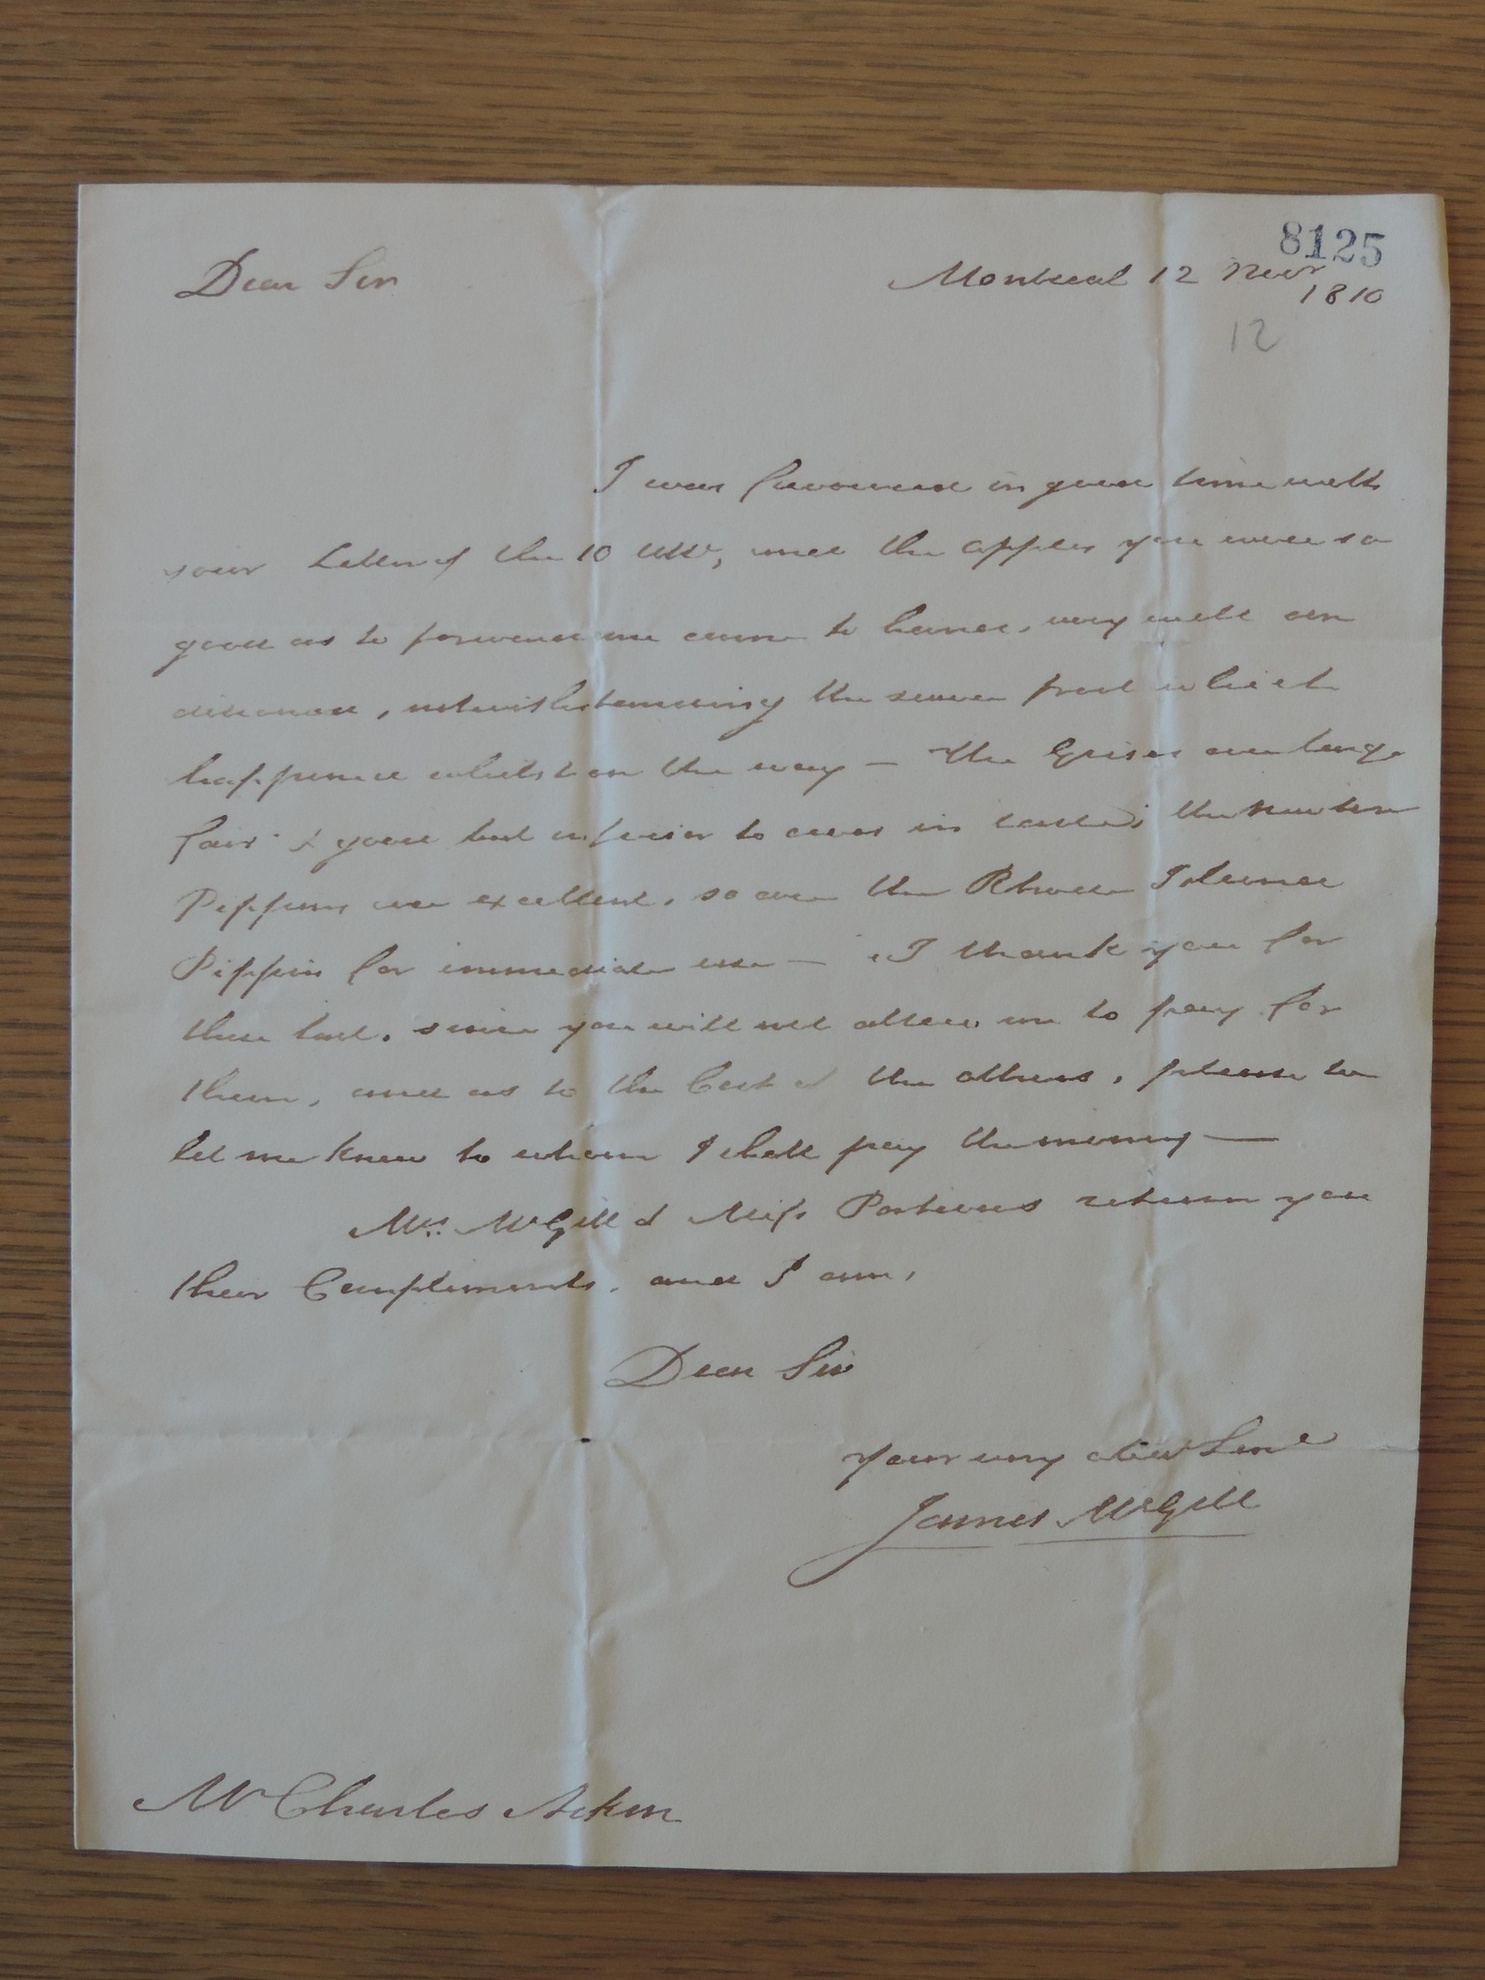 8125
Dear Sir Montreal 12 Novr
1810
12
I was favoured in good time with
your Letter of the 10 Ulto, and the apples you were so
good as to forward me came to hand, very well con
ditioned, notwithstanding the severe frost which
happened whilst on the way — The Grises are large
fair & good but inferior to ours in taste; the Newton
Pippins are excellent, so are the Rhode Island
Pippin for immediate use — I thank you for
these last, since you will not allow me to pay for
them, and as to the Cost of the others, please to
let me know to whom I shall pay the money —
Mrs. McGill & Miss Porteous return you
their Compliments, and I am,
Dear Sir
Your very obedt Servt
James McGill
Mr Charles Askin